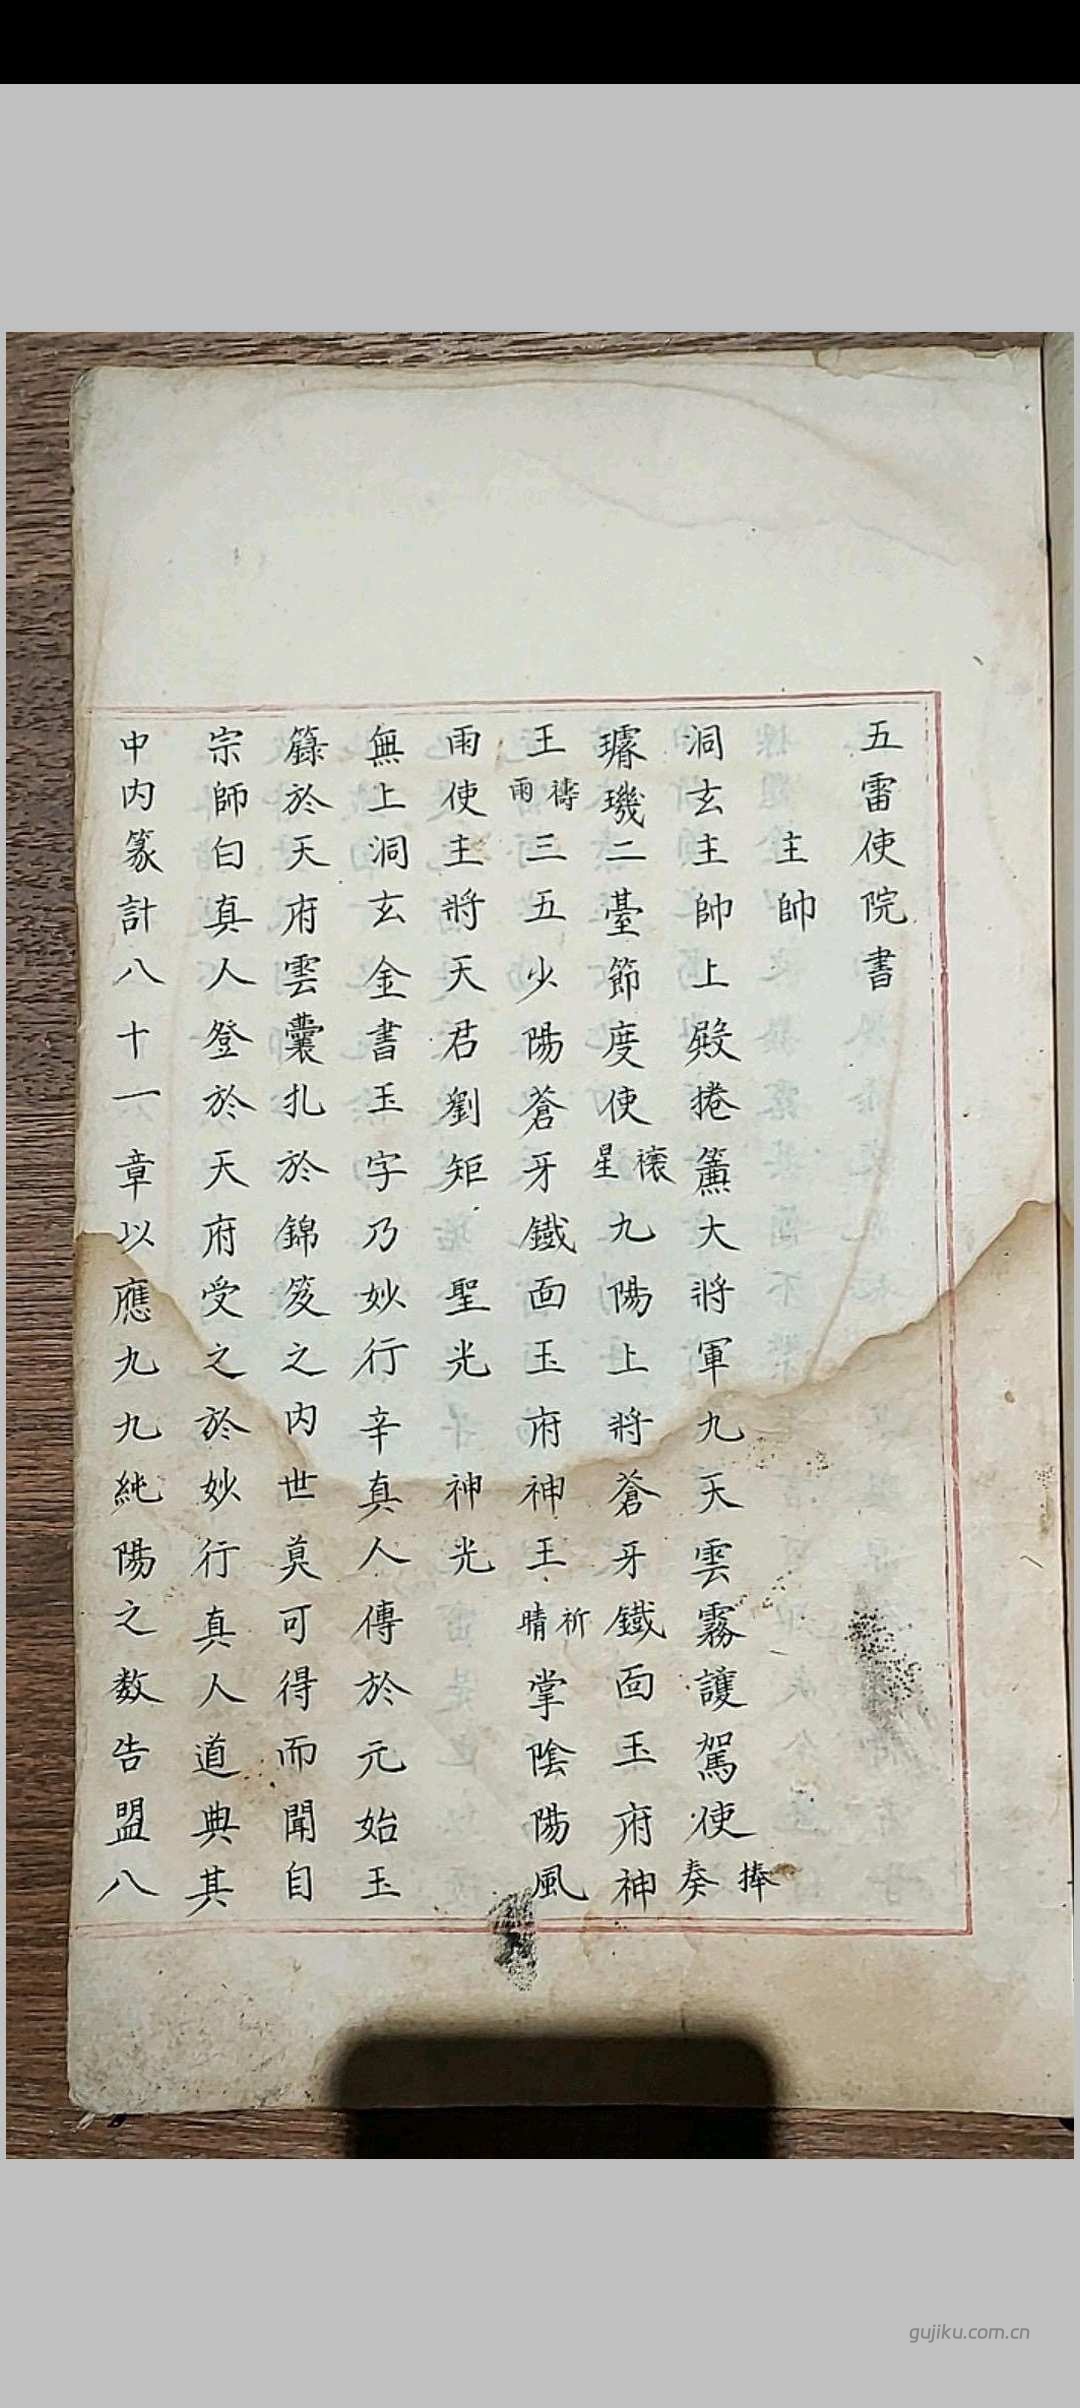 五雷使院書
主帥
洞玄主帥上殿捲簾大將軍九天雲霧護駕使捧奏
璿璣二臺節度使禳星九陽上將蒼牙鐵面玉府神
王禱雨三五少陽蒼牙鐵面玉府神王祈晴掌陰陽風
雨使主將天君劉矩 聖光 神光
無上洞玄金書玉字乃妙行辛真人傳於元始玉
籙於天府雲囊扎於錦笈之内世莫可得而聞自
宗師白真人登於天府受之於妙行真人道典其
中内篆計八十一章以應九九純陽之数告盟八
gujiku.com.cn